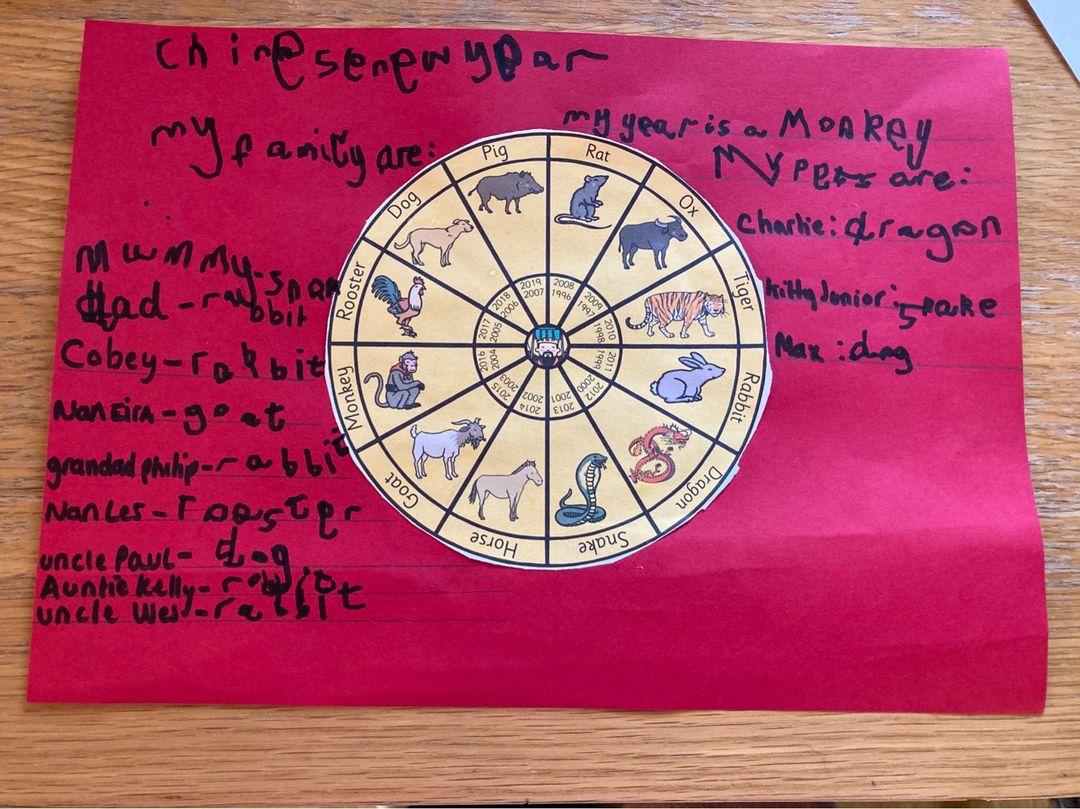 chinese new year
my family are:
Mummy-
dad - rabbit
Cobey - rabbit
Nan Eira - goat
grandad philip - rabbit
Nan Les - rooster
uncle Paul - dog
Auntie Kelly - rabbit
uncle Wes - rabbit
my year is a Monkey
My pets are:
Charlie: dragon
Kitty Junior: snake
Max: dog
Rat
2008
1996
Ox
2009
1997
Tiger
2010
1998
Rabbit
2011
1999
Dragon
2012
2000
Snake
2013
2001
Horse
2014
2002
Goat
2015
2003
Monkey
2016
2004
Rooster
2017
2005
Dog
2018
2006
Pig
2019
2007